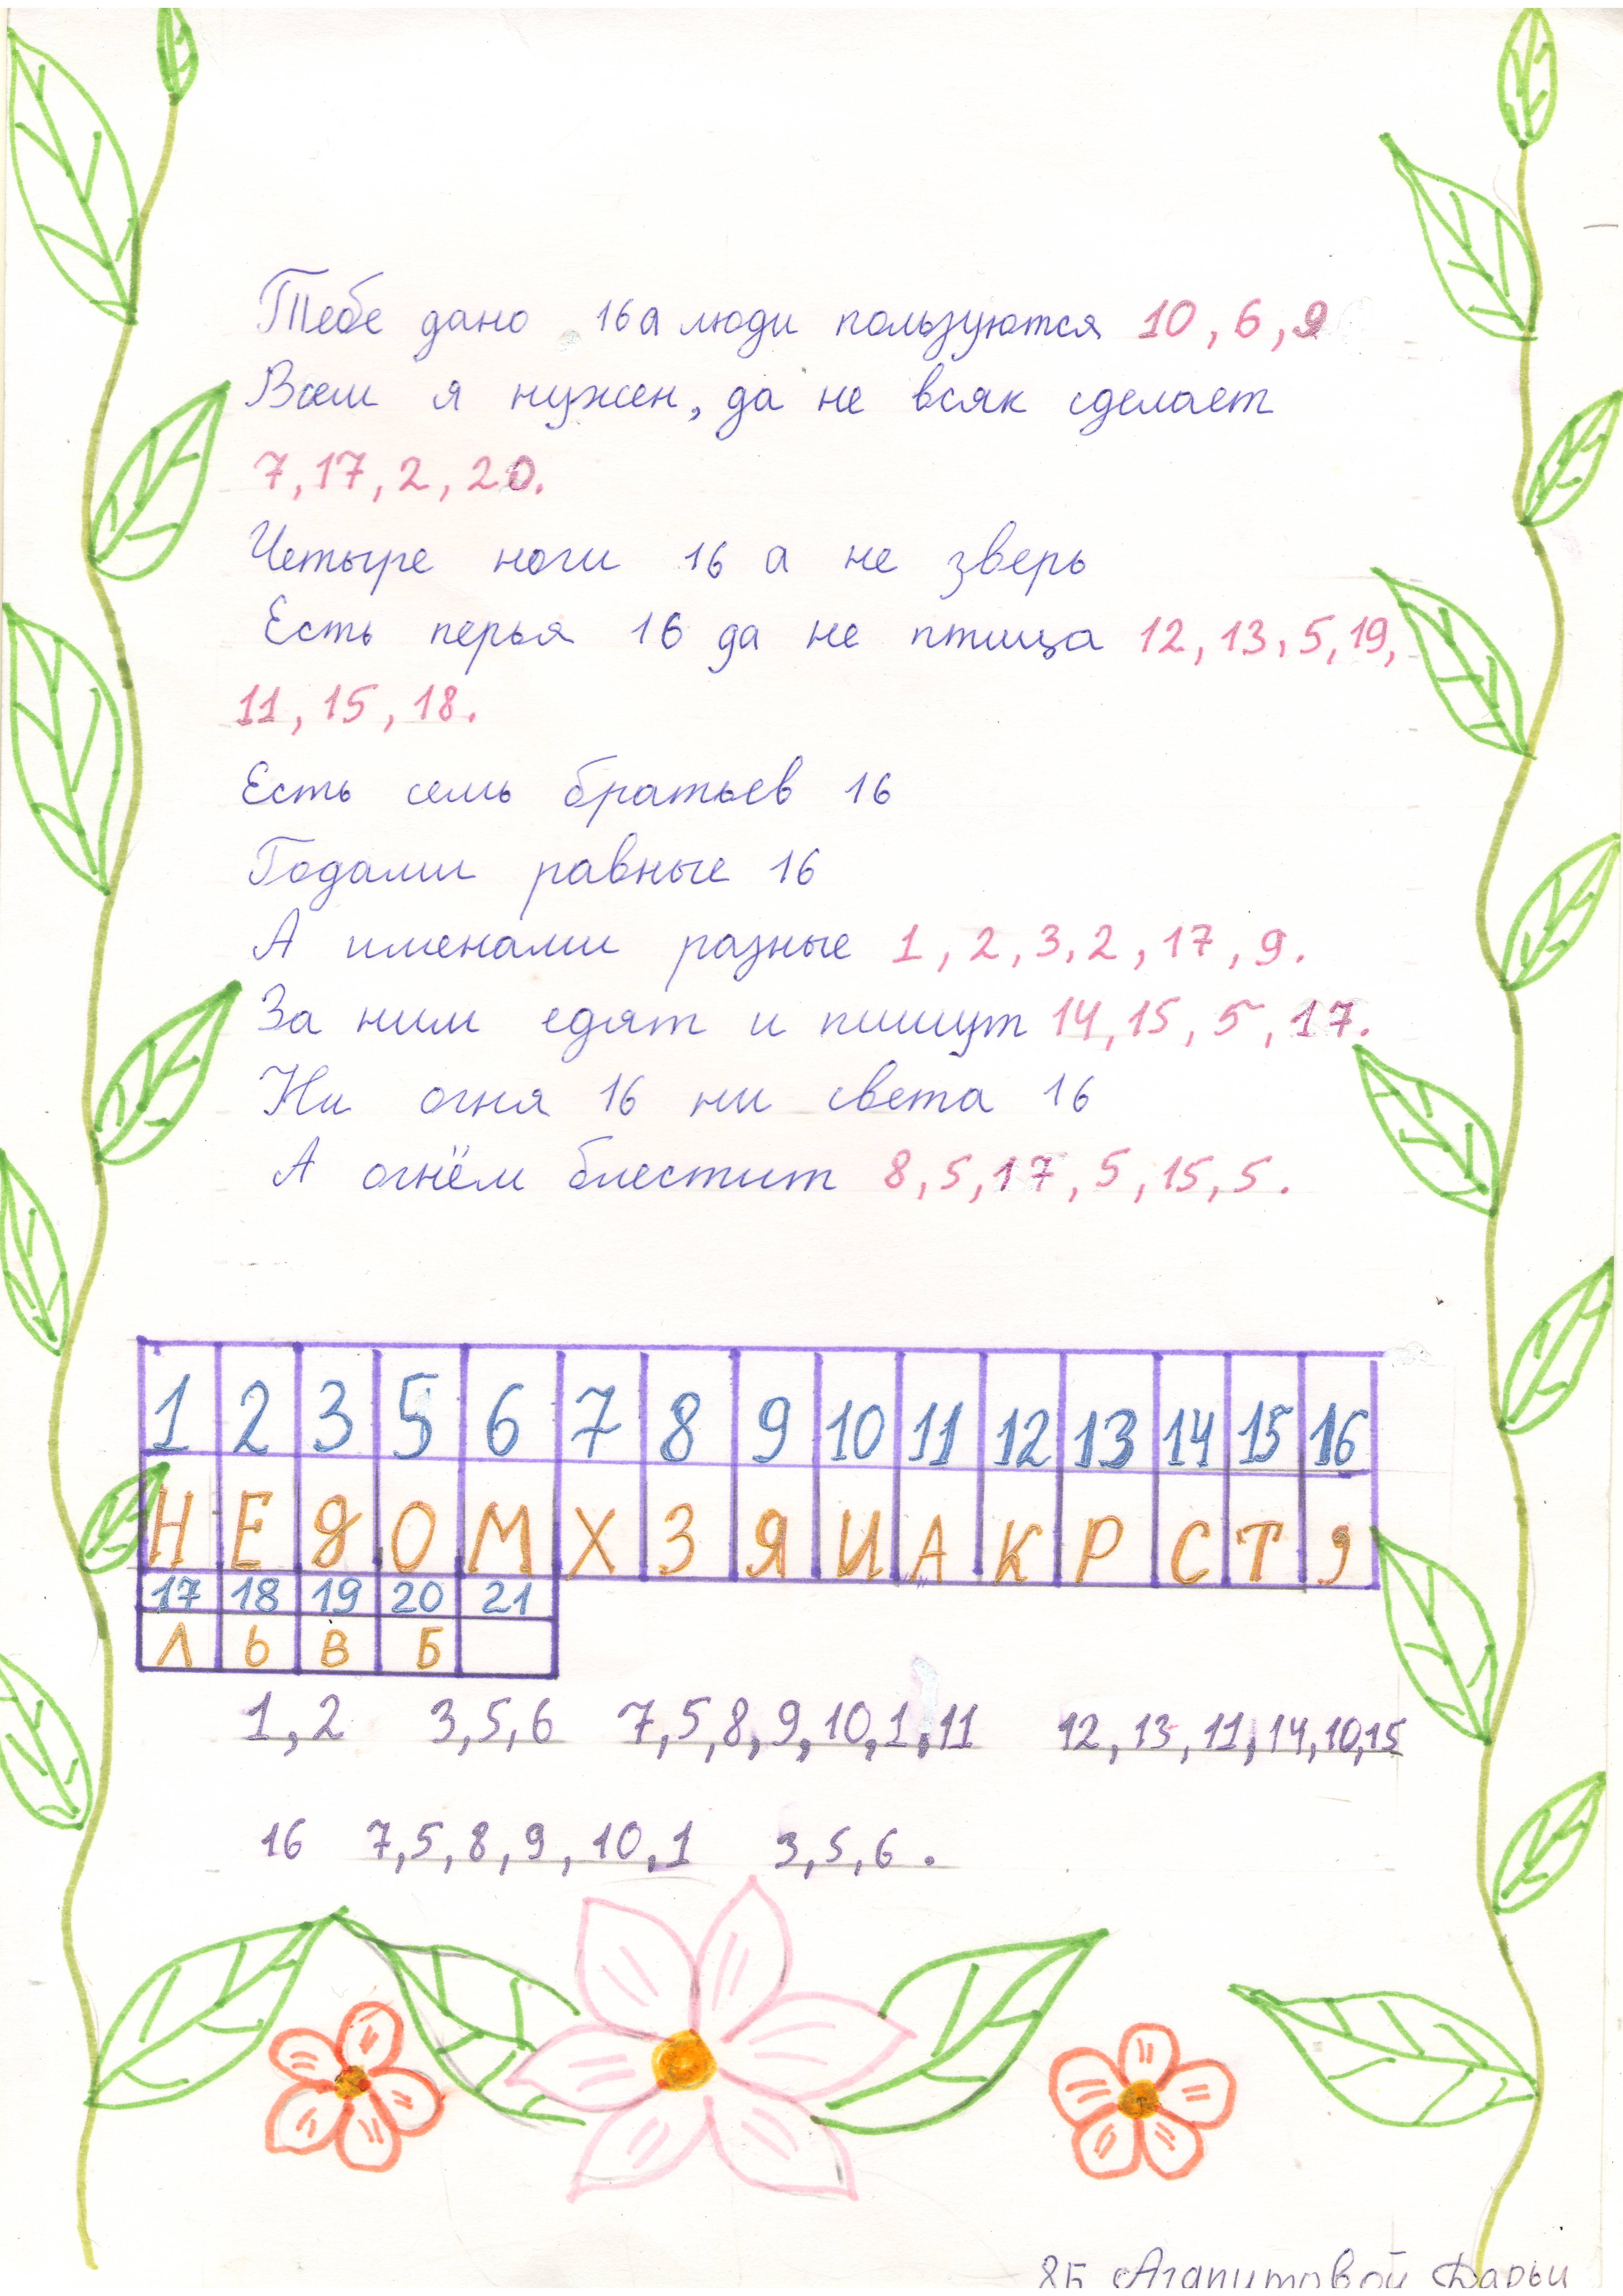 Тебе дано 16 а люди пользуются 10, 6, 9
Всем я нужен, да не всяк сделает
7, 17, 2, 20.
Четыре ноги 16 а не зверь
Есть перья 16 да не птица 12, 13, 5, 19,
11, 15, 18.
Есть семь братьев 16
Годами равные 16
А именами разные 1, 2, 3, 2, 17, 9.
За ним едят и пишут 14, 15, 5, 17.
Ни огня 16 ни света 16
А огнём блестит 8, 5, 17, 5, 15, 5.
1 2 3 5 6 7 8 9 10 11 12 13 14 15 16
Н Е Д О М Х З Я И А К Р С Т ,
17 18 19 20 21
Л Ь В Б
1, 2 3, 5, 6 7, 5, 8, 9, 10, 1, 11 12, 13, 11, 14, 10, 15
16 7, 5, 8, 9, 10, 1 3, 5, 6.
8Б Агапитовой Дарьи